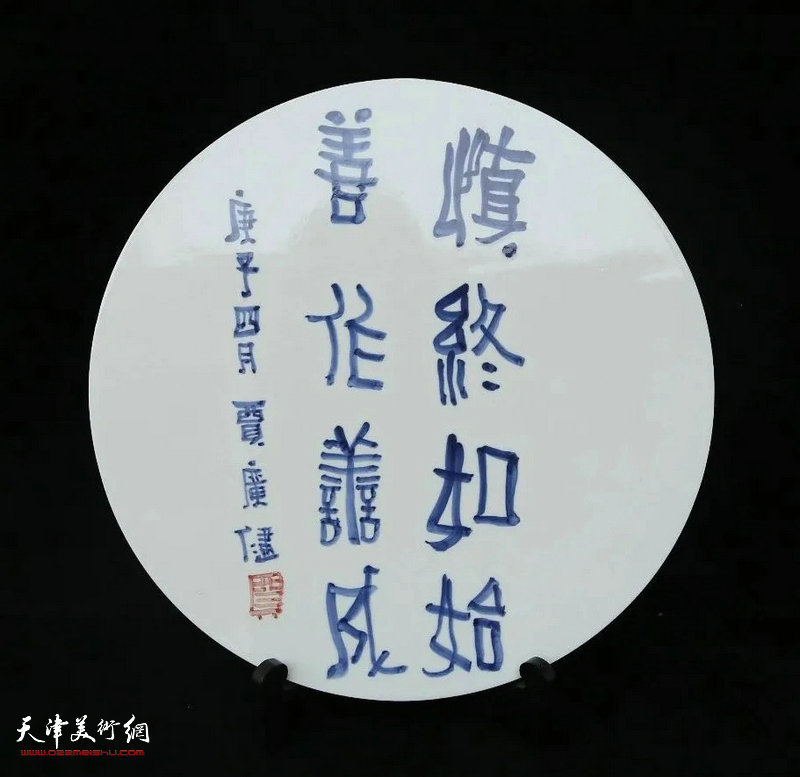 慎終如始
善作譱成
庚子四月賈廣健
天津美術網
www.022meishu.com